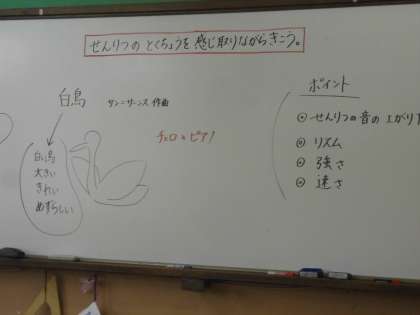 せんりつの とくちょうを 感じ取りながらきこう。
白鳥 サン=サーンス 作曲
チェロとピアノ
白い鳥
大きい
きれい
めずらしい
ポイント
せんりつの音の上がり下
リズム
強さ
速さ